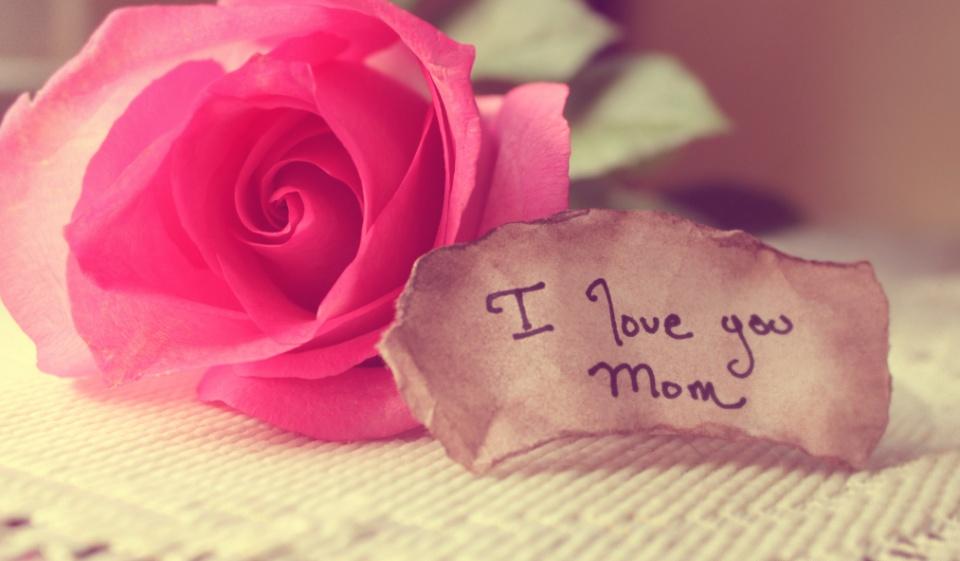 I love you
Mom